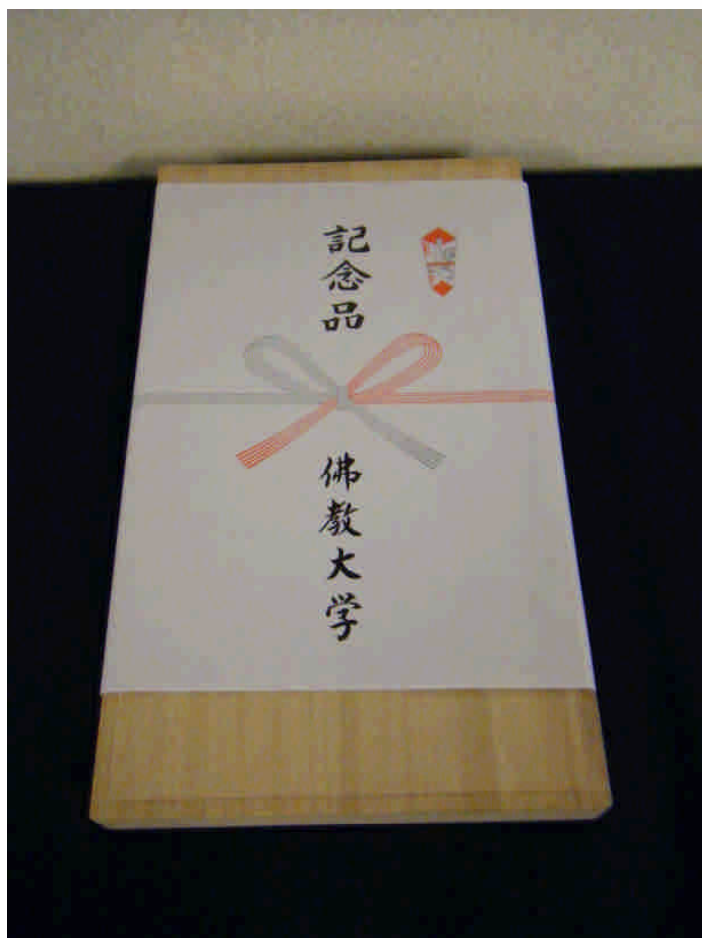 記念品
佛教大学